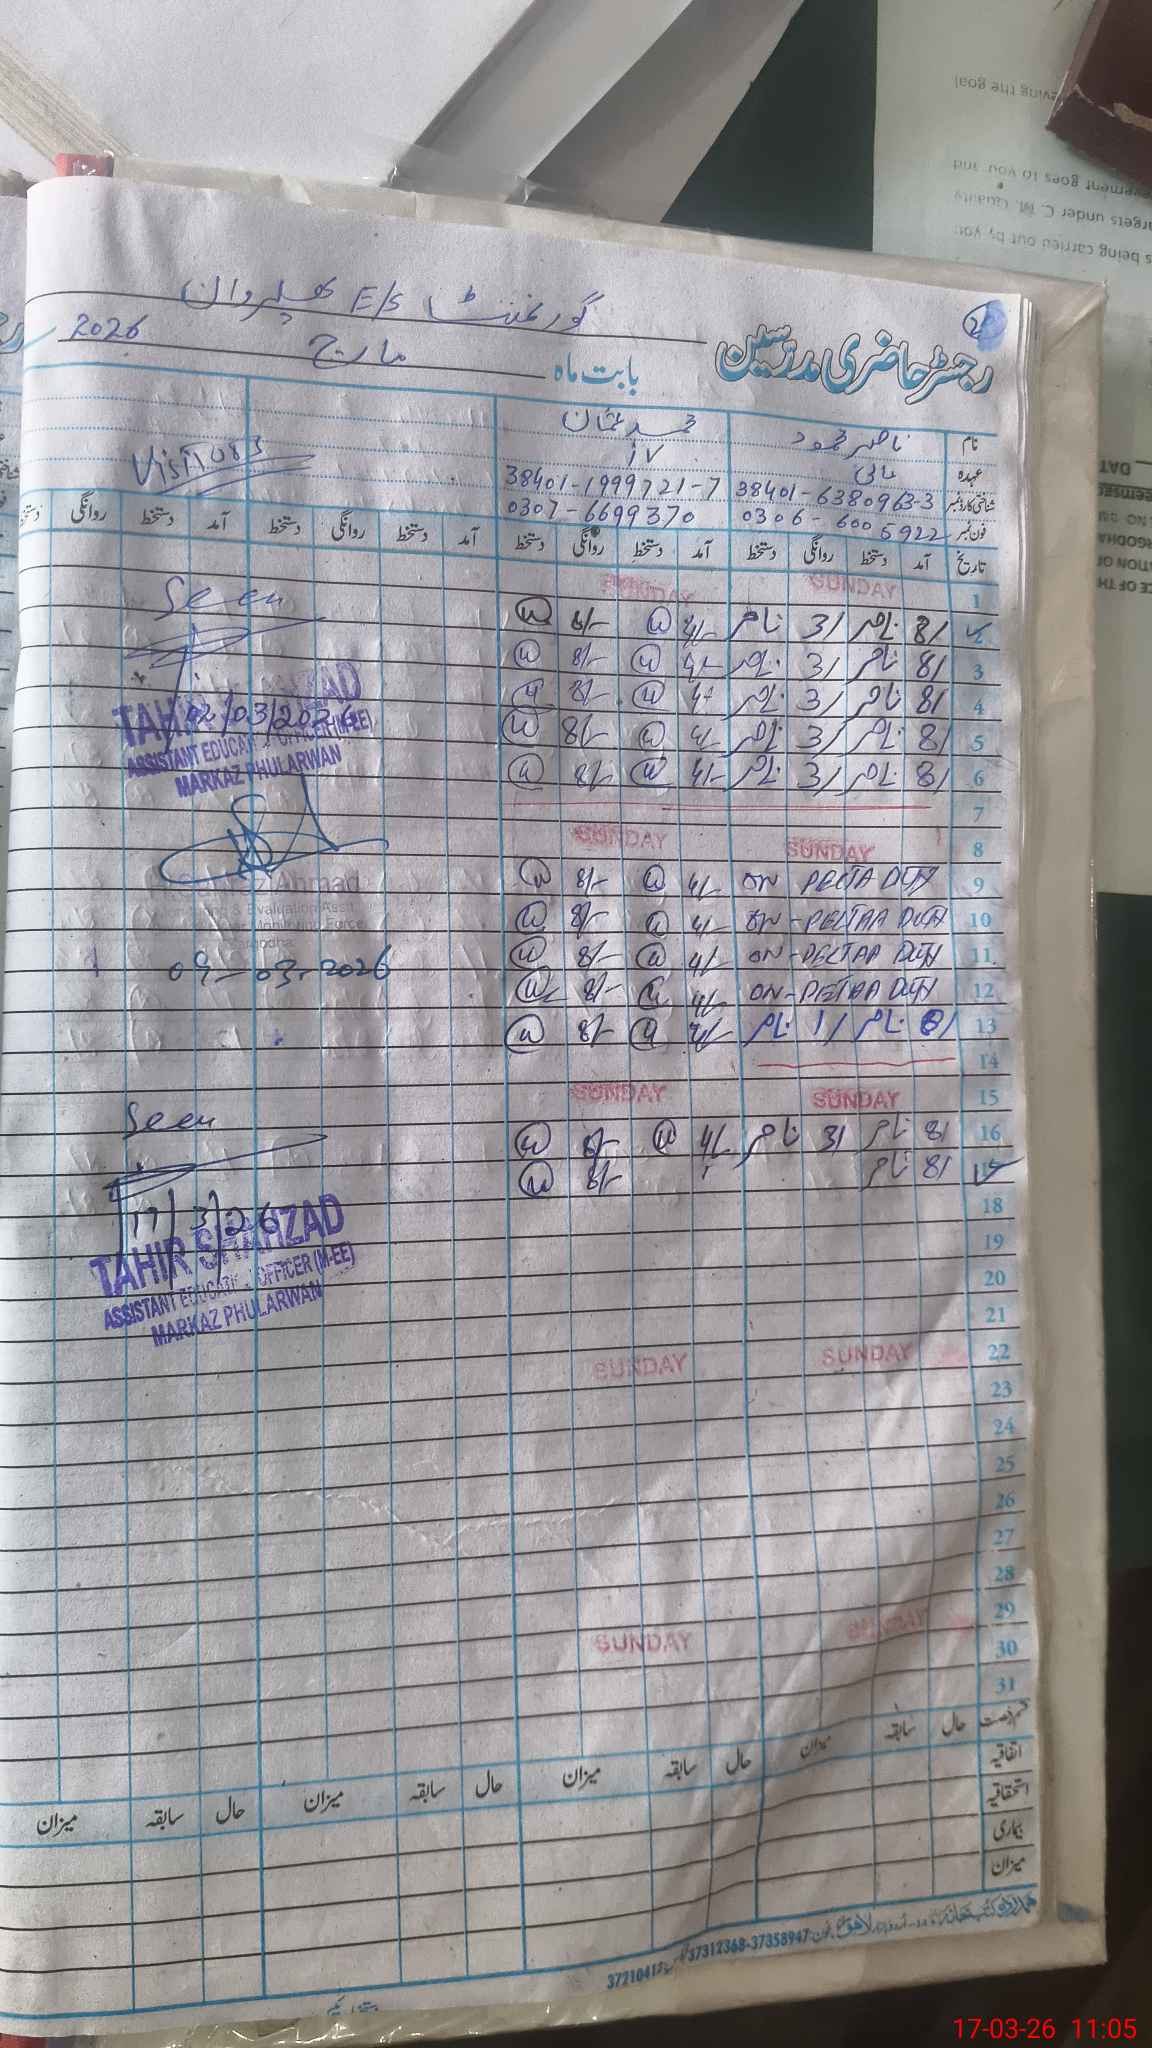 گورنمنٹ E/S پھلروان
رجسٹر حاضری مدرسین
بابت ماہ مارچ 2026
نام ناصر محمود محمد عثمان
عہدہ مالی
شناختی کارڈ نمبر 38401-6380963-3 38401-1999721-7
فون نمبر 0306-6005922 0307-6699370
Visitors
تاریخ آمد دستخط روانگی دستخط آمد دستخط روانگی دستخط آمد دستخط روانگی دستخط آمد دستخط روانگی دستخط
1 SUNDAY SUNDAY
Seen
2 8/ ناصر 3/ ناصر 4/- 8/-
3 8/ ناصر 3/ ناصر 4/- 8/-
4 8/ ناصر 3/ ناصر 4/- 8/-
5 8/ ناصر 3/ ناصر 4/- 8/-
6 8/ ناصر 3/ ناصر 4/- 8/-
02/03/2026
ASSISTANT EDUCATION OFFICER (M-EE)
MARKAZ PHULARWAN
7
8 SUNDAY SUNDAY
9 ON PELTA DUTY 4/- 8/-
10 ON-PELTAA DUTY 4/- 8/-
11 ON-PELTAA DUTY 4/- 8/-
12 ON-PETAA DUTY 4/- 8/-
13 8/ ناصر 1/ ناصر 4/- 8/-
Ahmad
& Evaluation Asstt.
Monitoring Force
09-03-2026
14
15 SUNDAY SUNDAY
16 8/ ناصر 3/ ناصر 4/- 8/-
17 8/ ناصر 8/-
Seen
17/3/26
TAHIR SHAHZAD
ASSISTANT EDUCATION OFFICER (M-EE)
MARKAZ PHULARWAN
18
19
20
21
22 SUNDAY SUNDAY
23
24
25
26
27
28
29 SUNDAY SUNDAY
30
31
قسم رخصت حال سابقہ میزان حال سابقہ میزان حال سابقہ میزان حال سابقہ میزان
اتفاقیہ
استحقاقیہ
بیماری
میزان
37312368-37358947
17-03-26 11:05